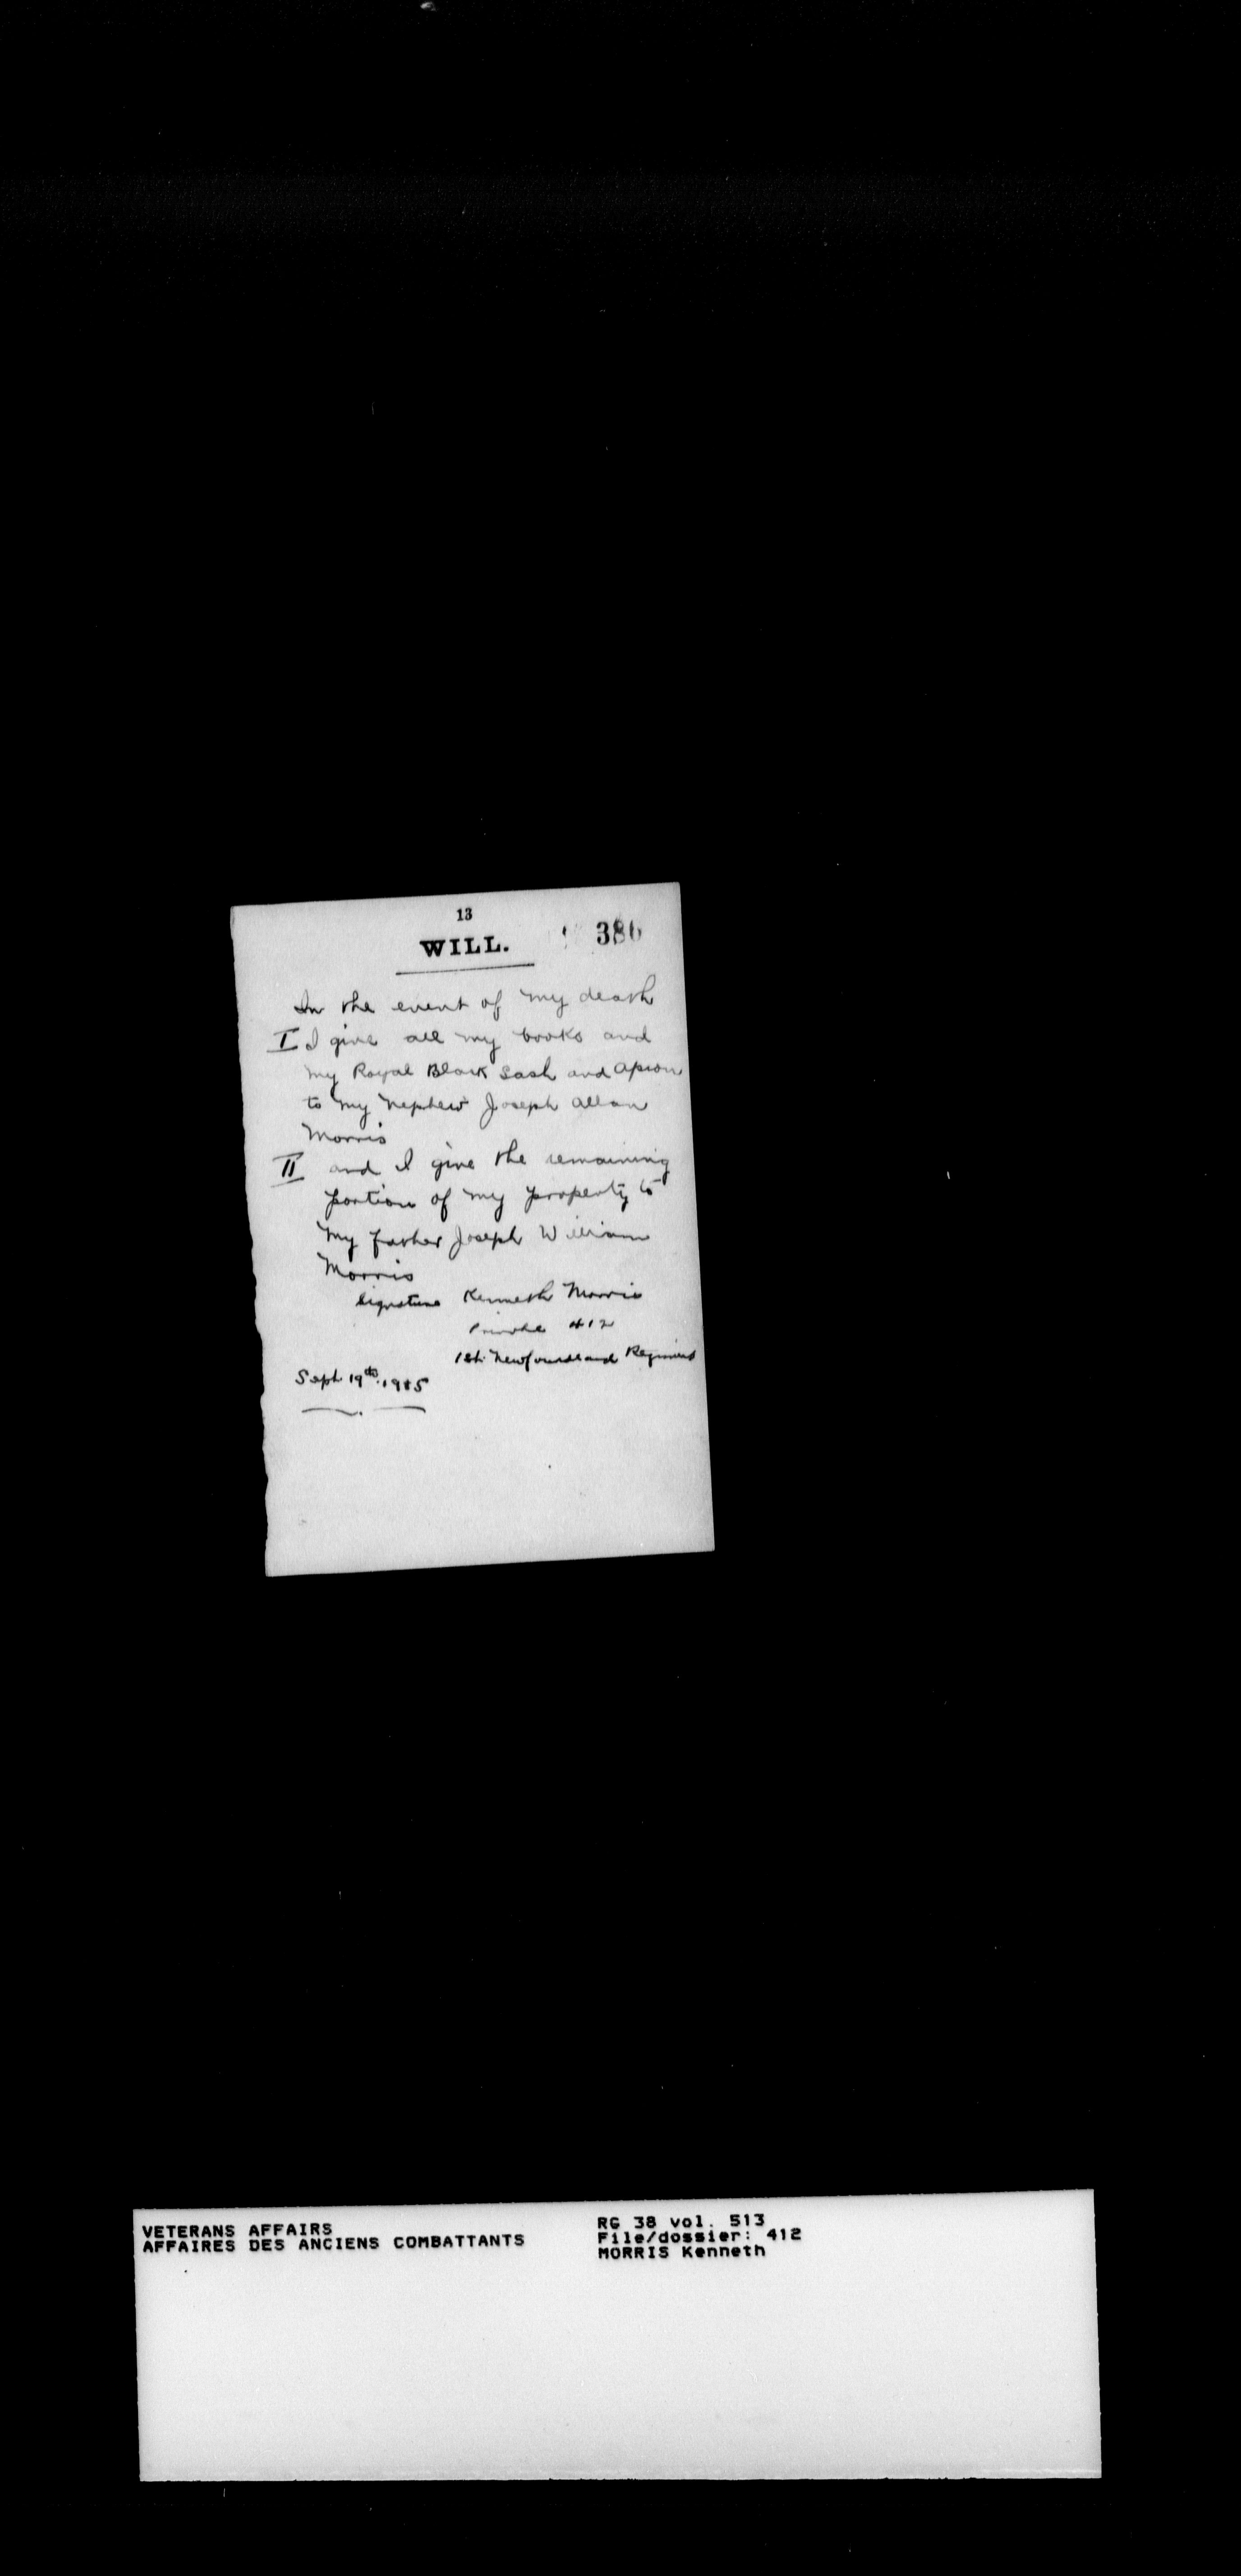 13
WILL.
386
In the event of my death
I I give all my books and
my Royal Black Sash and apron
to my nephew Joseph Allan
Morris
II and I give the remaining
portion of my property to
my father Joseph William
Morris
Signature Kenneth Morris
Private 412
1st Newfoundland Regiment
Sept 19th 1915
VETERANS AFFAIRS
AFFAIRES DES ANCIENS COMBATTANTS
RG 38 vol. 513
File/dossier: 412
MORRIS Kenneth